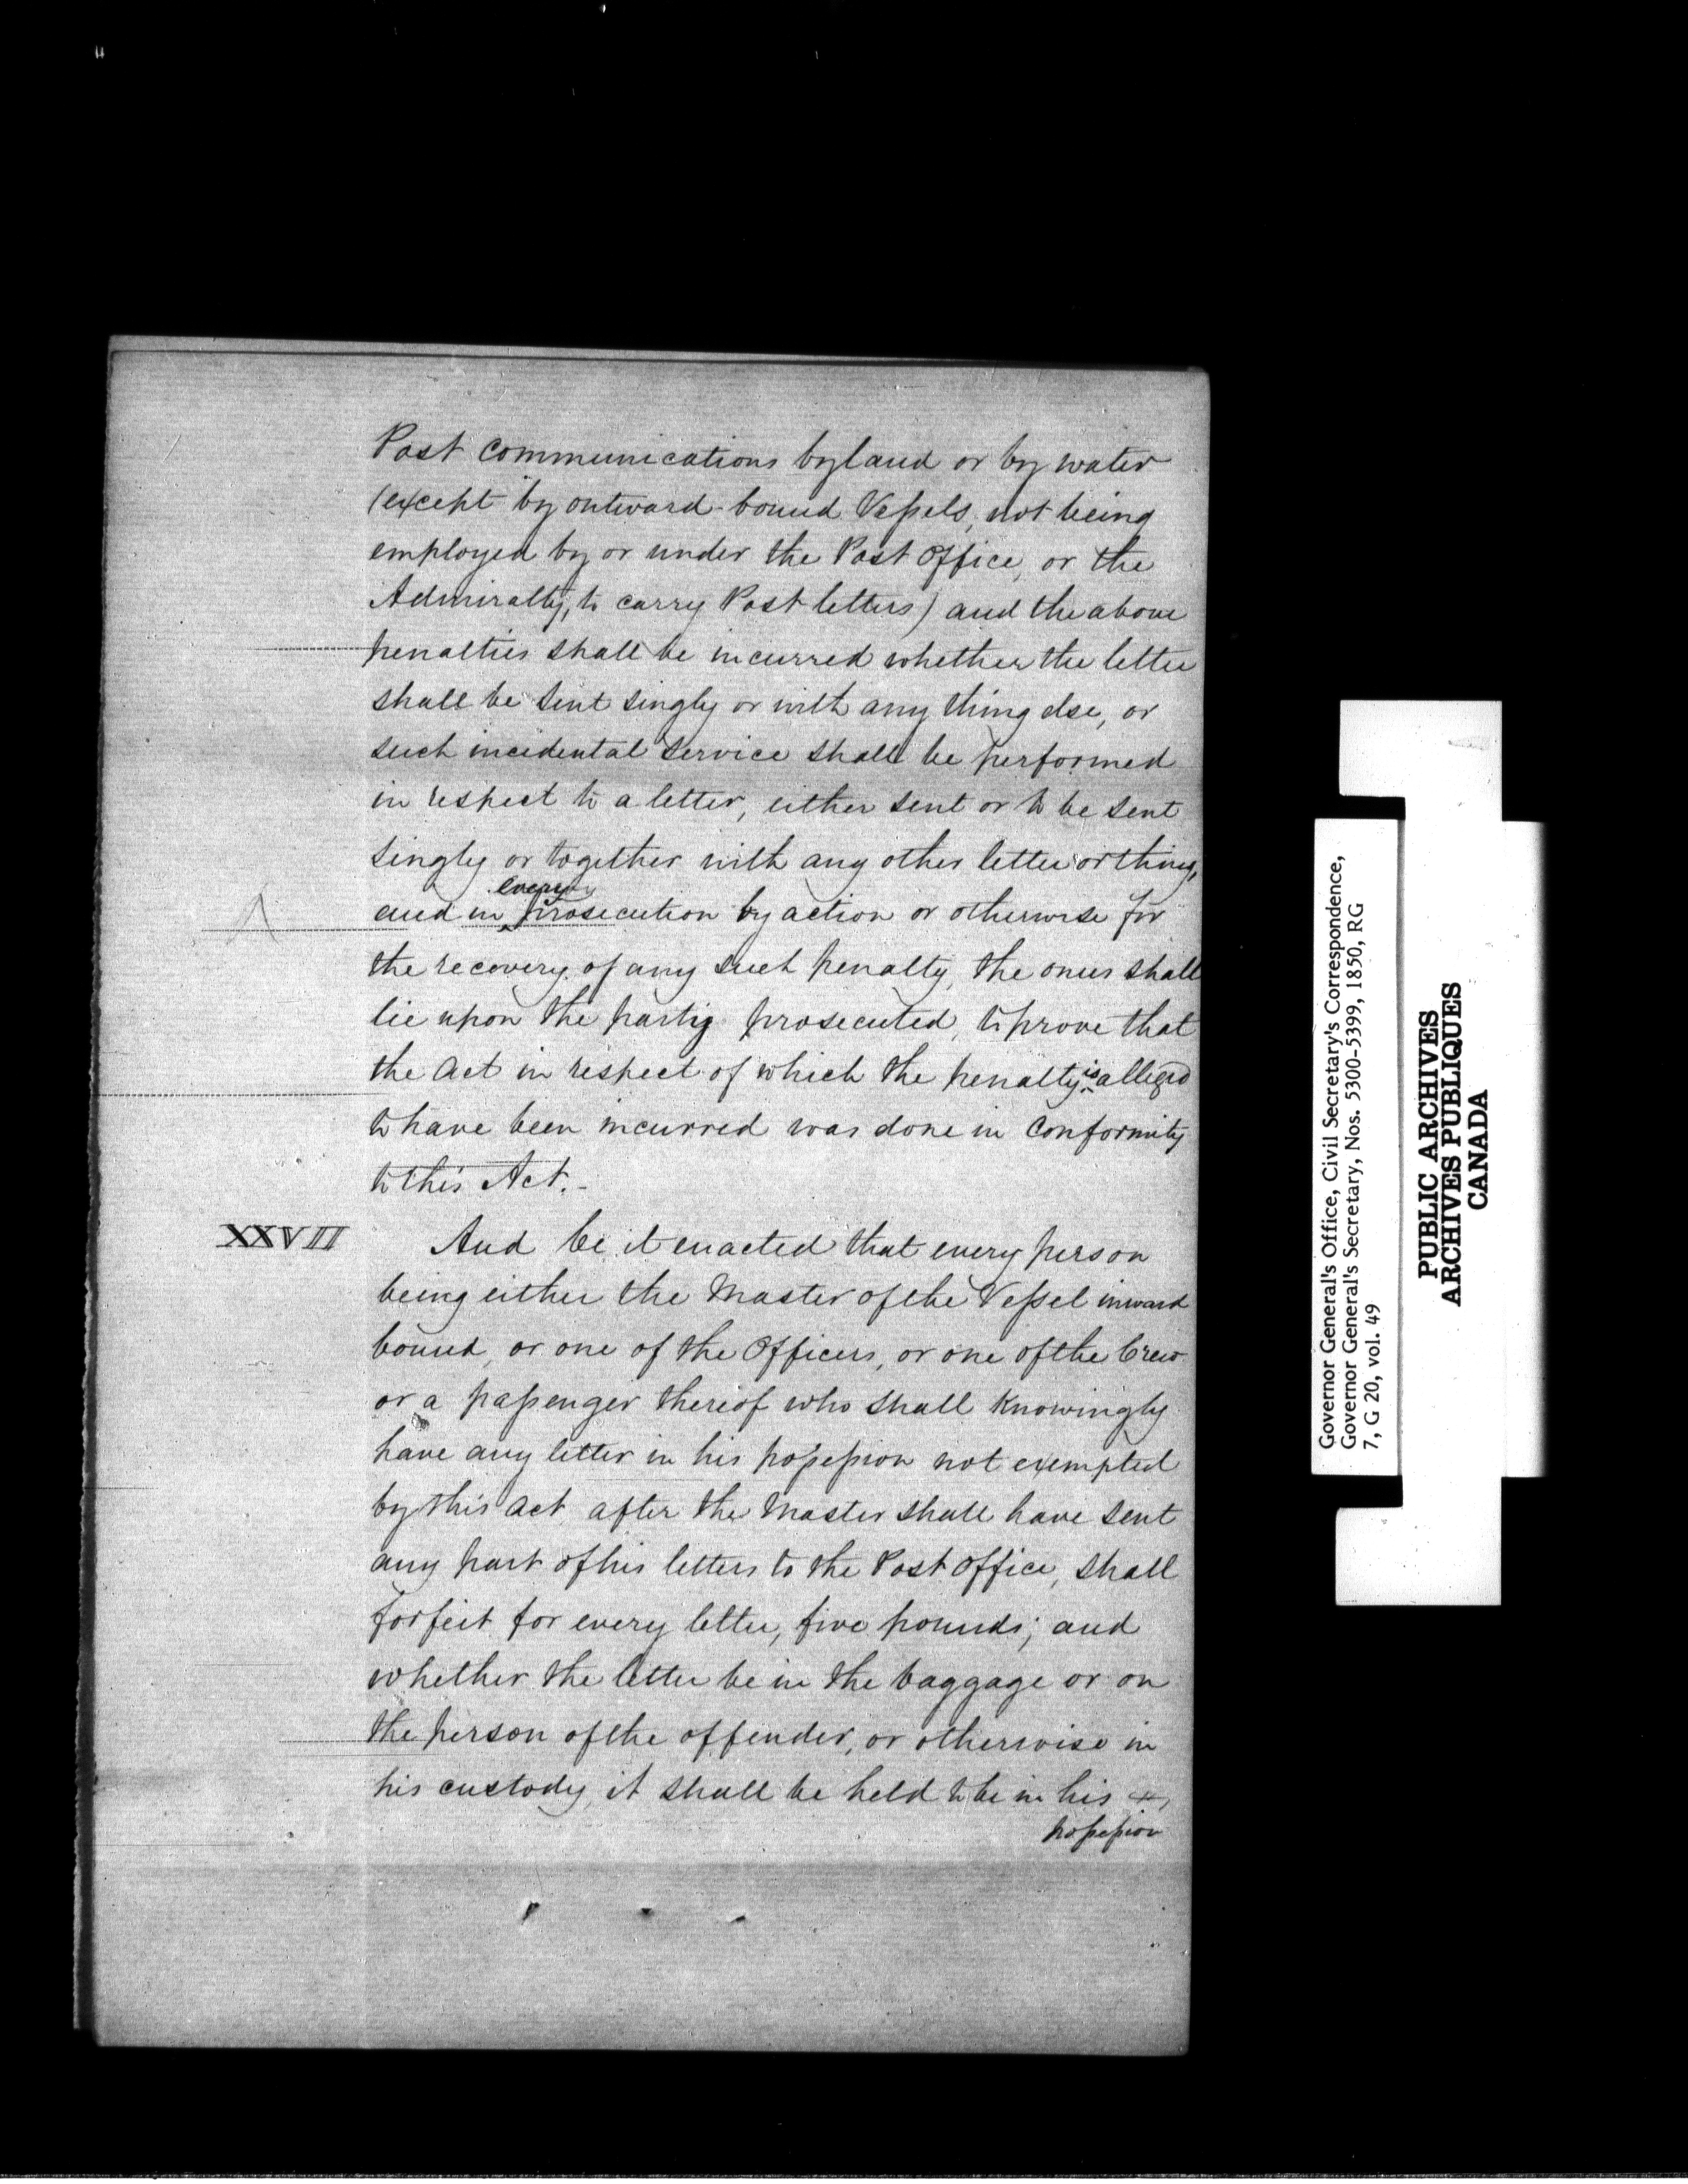 Post Communications by land or by water
(except by outward-bound Vessels, not being
employed by or under the Post Office, or the
Admiralty, to carry Post letters) and the above
penalties shall be incurred whether the letter
shall be sent singly or with any thing else, or
such incidental service shall be performed
in respect to a letter, either sent or to be sent
singly or together with any other letter or thing,
every
and in ^ prosecution by action or otherwise for
the recovery of any such penalty, the onus shall
lie upon the party prosecuted, to prove that
the Act in respect of which the penalty is alleged
to have been incurred was done in Conformity
to this Act.-
XXVII And be it enacted that every person
being either the Master of the Vessel inward
bound, or one of the Officers, or one of the Crew
or a passenger thereof who shall Knowingly
have any letter in his possession not exempted
by this Act after the Master shall have sent
any part of his letters to the Post Office, shall
forfeit for every letter, five pounds; and
whether the letter be in the baggage or on
the person of the offender, or otherwise in
his custody, it shall be held to be in his
possession
Governor General's Office, Civil Secretary's Correspondence,
Governor General's Secretary, Nos. 5300-5399, 1850, RG
7, G 20, vol. 49
PUBLIC ARCHIVES
ARCHIVES PUBLIQUES
CANADA